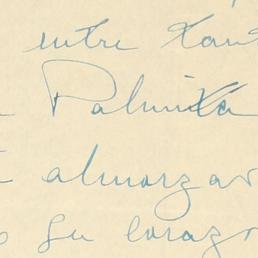 entre tan
Palmita
almorzar
su coraz